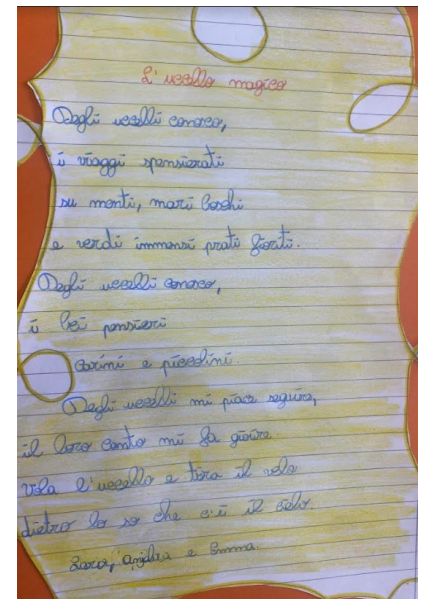 L'uccello magico
Degli uccelli conosco,
i viaggi spensierati
su monti, mari boschi
e verdi immensi prati fioriti.
Degli uccelli conosco,
i bei pensieri
carini e piccolini.
Degli uccelli mi piace seguire,
il loro canto mi fa gioire.
Vola l'uccello e tira il velo
dietro lo so che c'è il cielo.
e Emma.